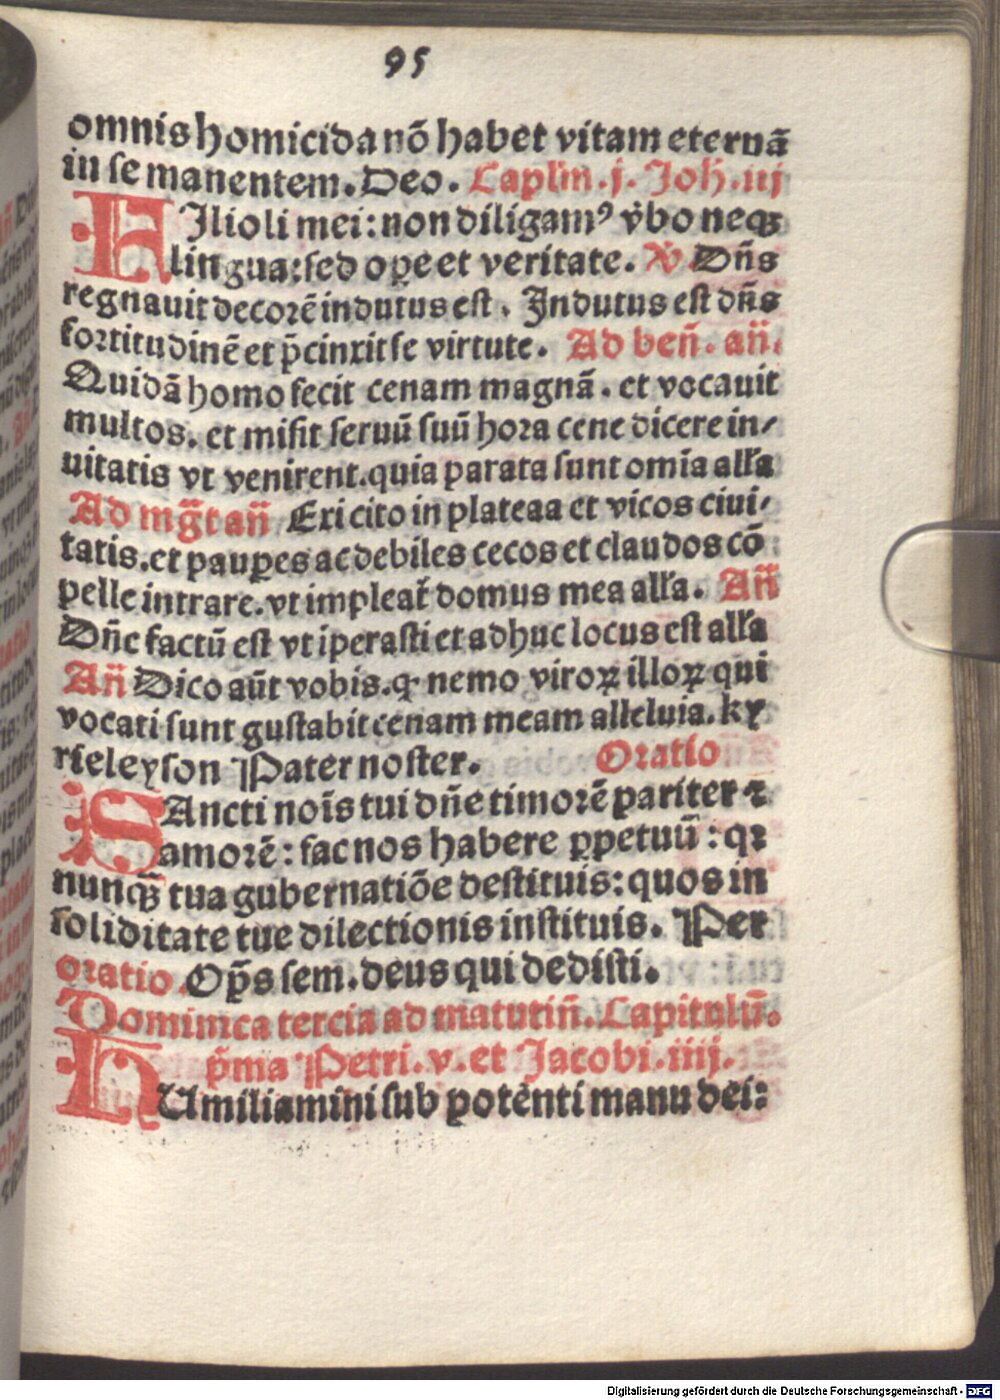 95
omnis homicida nō habet vitam eternā
in se manentem. Deo. Caplm. j. Joh. iij
FIlioli mei: non diligamꝰ v̄bo neqꝫ
lingua: sed oꝑe et veritate. V̄ Dn̄s
regnauit decorē indutus est. Indutus est dn̄s
fortitudinē et p̄cinxit se virtute. Ad ben̄. an̄.
Quidā homo fecit cenam magnā. et vocauit
multos. et misit seruū suū hora cene dicere in⸗
uitatis vt venirent. quia parata sunt omīa all'a
Ad mḡt an̄ Exi cito in plateaa et vicos ciui⸗
tatis. et pauꝑes ac debiles cecos et claudos cō
pelle intrare. vt impleat̄ domus mea all'a. An̄
Dn̄e factū est vt iperasti et adhuc locus est all'a
An̄ Dico aūt vobis. ꝙ nemo viroꝝ illoꝝ qui
vocati sunt gustabit cenam meam alleluia. ky
rieleyson Pater noster. Oratio
SAncti noīs tui dn̄e timorē pariter ⁊
amorē: fac nos habere ꝑpetuū: qꝛ
nunqꝫ̄ tua gubernatiōe destituis: quos in
soliditate tue dilectionis instituis. Per
oratio. Op̄s sem. deus qui dedisti.
Dominica tercia ad matutin̄. Capitulū.
p̄ma Petri. v. et Jacobi. iiij.
HUmiliamini sub potenti manu dei:
Digitalisierung gefördert durch die Deutsche Forschungsgemeinschaft - DFG